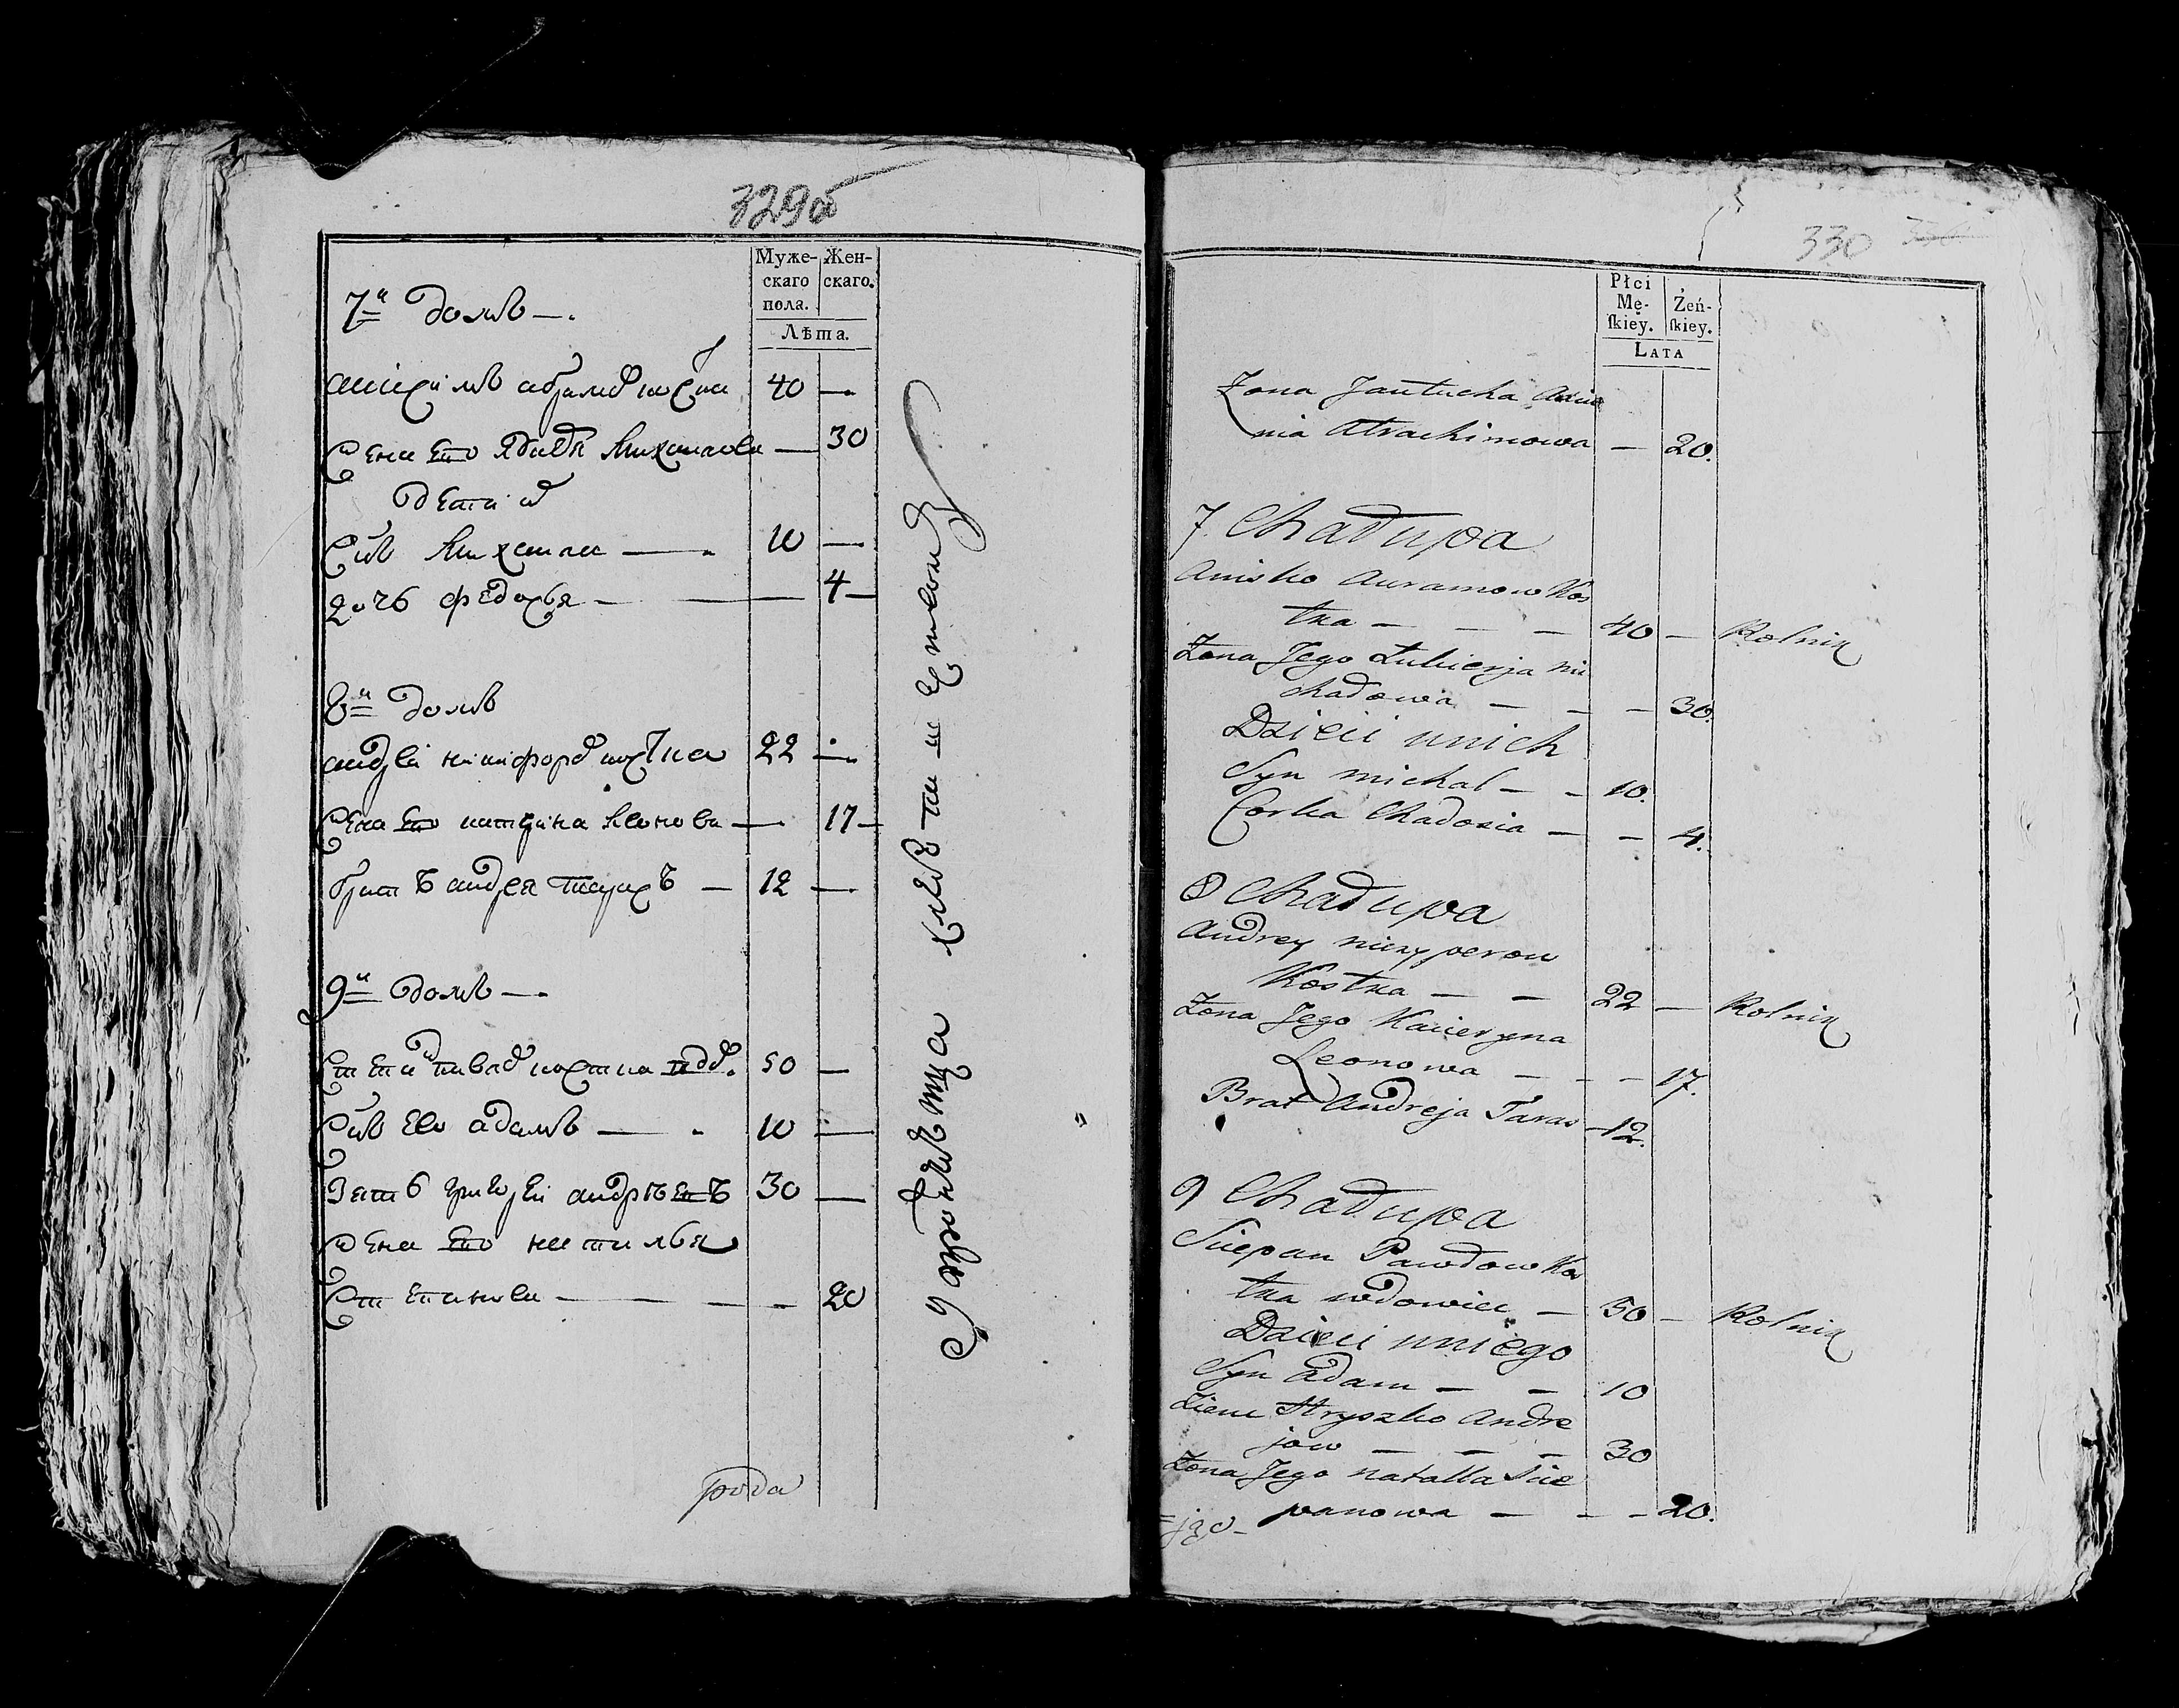 329об
Муже-
скаго
пола.
Жен-
скаго.
Лѣта.
7й домъ —.
40 —
жена его Михайлова — 30
дети их
Сынъ Михайла — 10 —
дочь федосья — 4 —
8й домъ
андрей никифоров костка 22 —
жена его катерина леонова — 17 —
братъ андрея тарасъ — 12 —
9й домъ —.
степан павлов костка вдо. 50 —
Сынъ его адамъ — 10 —
Зять григорей андреевъ 30 —
жена его наталья
степанова — 20
330
Płci
Mę-
ſkiey.
Żeń-
ſkiey.
LATA
Zona Jautucha
nia Atrachimowa — 20.
7. Chałupa
Anisko Auramow Kos
tka — — — 40 — Rolnik
Zona Jego Łukierja mi
chałowa — — — 30.
Dzieci unich
Syn michał — — 10.
Corka Chadosia — — 4.
8 Chałupa
Andrey niczyperow
Kostka — — 22 — Rolnik
Zona Jego Kacieryna
Leonowa — — — 17.
Brat Andreja Taras — 12.
9 Chałupa
Sciepan Pawłow Kos
tka wdowiec — 50 — Rolnik
Dzieci uniego
Syn Adam — — 10
Zienc Hryszko Andre
jow — — — 30
Zona Jego natalla Scie
panowa — — — 20.